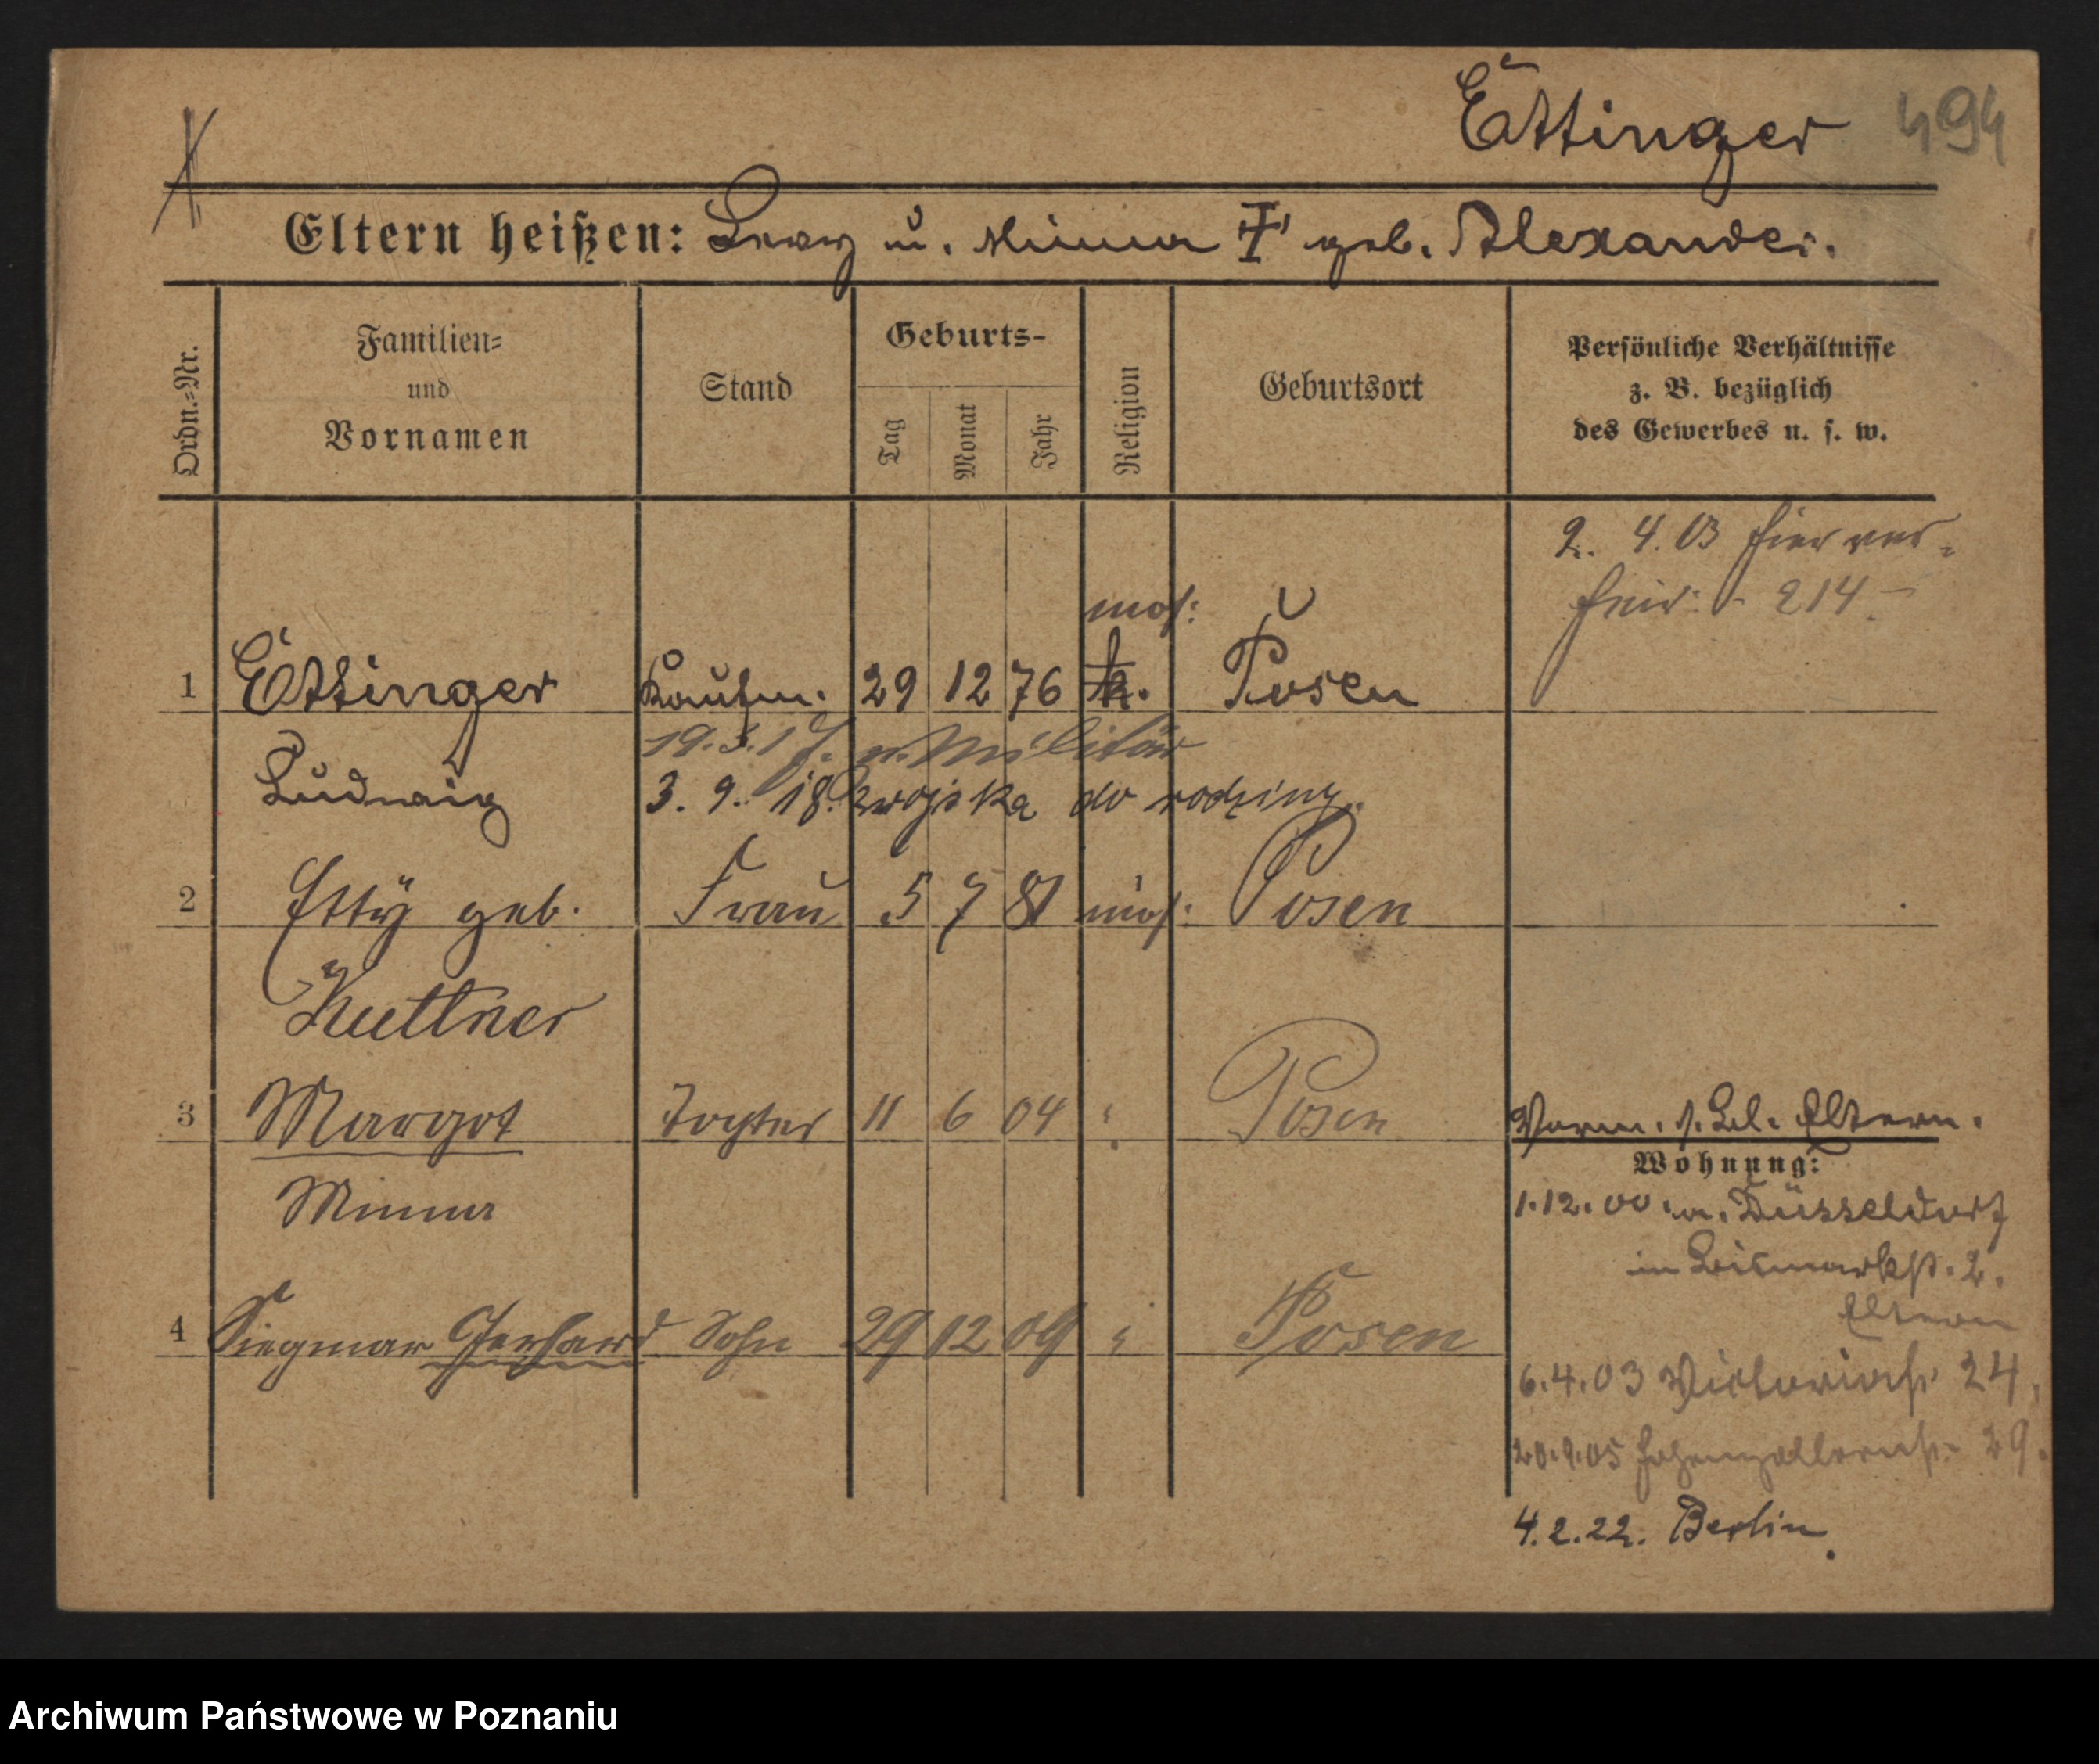 Ettinger 494
Eltern heißen: u. Minna geb. Alexander.
Ordn.-Nr.
Familien-
und
Vornamen
Stand
Geburts-
Tag
Monat
Jahr
Religion
Geburtsort
Persönliche Verhältnisse
z. B. bezüglich
des Gewerbes u. s. w.
2. 4. 03 hier ver-
heir: - 214 -
mos:
1 Ettinger Kaufm. 29 12 76 k. Posen
Ludwig
Militär
3. 9. 18. z wojska do rodziny.
2 Etty geb. Frau 5 7 81 mos: Posen
Kuttner
3 Margot Tochter 11 6 04 Posen
Minna
4 Siegmar Gerhard Sohn 29 12 09 Posen
Eltern.
Wohnung:
1.12.00. Düsseldorf
Bismarkst. 2.
Eltern
6.4.03 Victoriast. 24,
20.9.05 Hohenzollernst. 29.
4.2.22. Berlin.
Archiwum Państwowe w Poznaniu